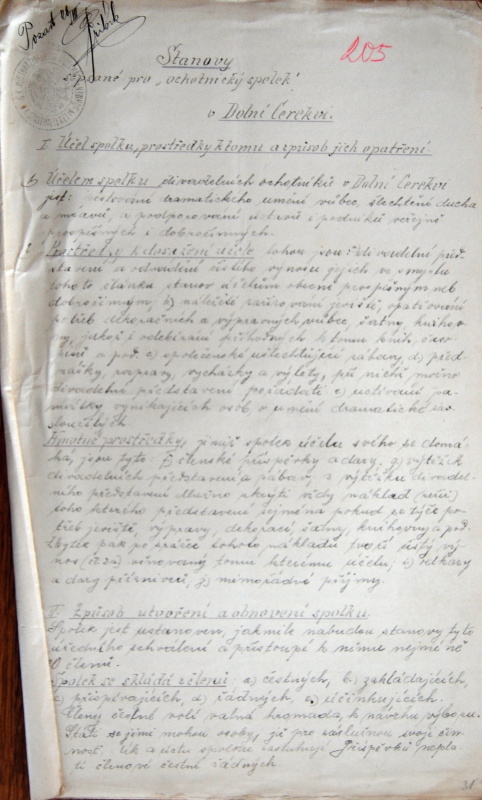 205
Stanovy
sepsané pro „ochotnický spolek“
v Dolní Cerekvi.
I. Účel spolku, prostředky k tomu a způsob jich opatření.
Účelem spolku divadelních ochotníků v Dolní Cerekvi
jest: pěstování dramatického umění vůbec, šlechtění ducha
a mravů, a podporování ústavů i podniků veřejně
prospěšných i dobročinných.
Prostředky k dosažení účele tohoto jsou: divadelní před-
stavení a odvádění čistého výnosu jejich ve smyslu
tohoto článku stanov účelům obecně prospěšným neb
dobročinným, b) náležité zařizování jeviště, opatřování
potřeb dekoračních a výpravných vůbec, šatny, kniho-
ny, jakož i odebírání příhodných k tomu knih, časo-
pisů a pod. c) společenské ušlechťující zábavy, d) před-
nášky, popravy, vycházky a výlety, při nichž možno
divadelní představení pořádati e) uctívání pa-
mátky vynikajících osob, o umění dramatické za-
sloužilých
Hmotné prostředky, jimiž spolek účelu svého se domá-
há, jsou tyto: f) členské příspěvky a dary, g) výtěžek
divadelních představení a zábavy, z výtěžku divadel-
ního představení nutno ukrýti vždy náklad
toho kterého představení, zejména pokud se týče po-
třeb jeviště, výpravy, dekorací, šatny, knihovny a pod.
Zbytek pak po srážce tohoto nákladu tvoří čistý vý-
nos věnovaný tomu kterému účelu, i) odkazy
a dary příznivců, j) mimořádné příjmy.
II. Způsob utvoření a obnovení spolku.
Spolek jest ustanoven, jakmile nabudou stanovy tyto
úředního schválení a přistoupí k němu nejméně
10 členů.
Spolek se skládá z členů: a) čestných, b) zakládajících,
c) přispívajících, d) řádných, e) účinkujících.
Členy čestné volí valná hromada, k návrhu výboru.
Státi se jimi mohou osoby, jež pro záslužnou svoji čin-
nost, úk a úctu spolku zasluhují. Příspěvků nepla-
tí členové čestní řádných
31